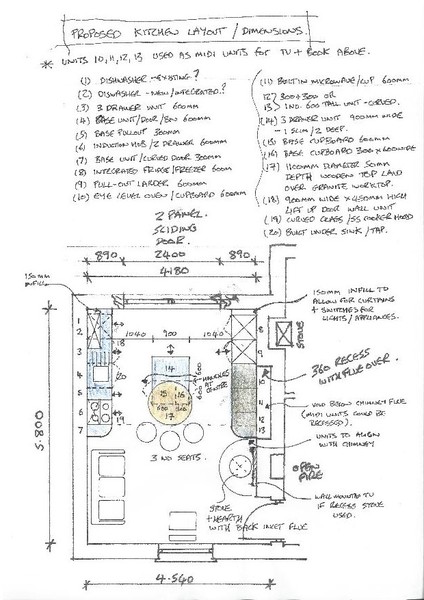 PROPOSED KITCHEN LAYOUT / DIMENSIONS.
* UNITS 10, 11, 12, 13 USED AS MIDI UNITS FOR TV + BOOK ABOVE.
(1) DISHWASHER - EXISTING?
(2) DISHWASHER - NEW/INTEGRATED?
(3) 3 DRAWER UNIT 600mm
(4) BASE UNIT/DOOR/BIN 600mm
(5) BASE PULLOUT 300mm
(6) INDUCTION HOB/2 DRAWER 600mm
(7) BASE UNIT/CURVED DOOR 300mm
(8) INTEGRATED FRIDGE/FREEZER 600mm
(9) PULL-OUT LARDER 600mm
(10) EYE LEVEL OVEN/CUPBOARD 600mm
(11) BUILT IN MICROWAVE/CUP 600mm
12) 300+300 OR
13) 1 NO. 600 TALL UNIT - CURVED.
(14) 3 DRAWER UNIT 900mm WIDE
- 1 SLIM/2 DEEP.
(15) BASE CUPBOARD 600mm
(16) BASE CUPBOARD 300 x 600 WIDE
(17) 1100mm DIAMETER 50mm
DEPTH WOODEN TOP LAID
OVER GRANITE WORKTOP.
(18) 900mm WIDE x 450mm HIGH
LIFT UP DOOR WALL UNIT
(19) CURVED GLASS/SS COOKER HOOD
(20) BUILT UNDER SINK/TAP.
2 PANEL
SLIDING
DOOR.
890 2400 890
4180
150mm
INFILL
150mm INFILL TO
ALLOW FOR CURTAINS
+ SWITCHES FOR
LIGHTS/APPLIANCES.
STOVE
1040 900 1040
1
2
3
4
5
6
7
18
20
19
14
15 16
600 300
600
8
9
10
11
12
13
360 RECESS
WITH FLUE OVER.
VOID BELOW CHIMNEY FLUE
(MIDI UNITS COULD BE
RECESSED).
UNITS TO ALIGN
WITH CHIMNEY
3 NO SEATS.
OPEN
FIRE
WALL MOUNTED TV
IF RECESS STOVE
USED.
STOVE
+ HEARTH
WITH BACK INLET FLUE
5.800
4.540